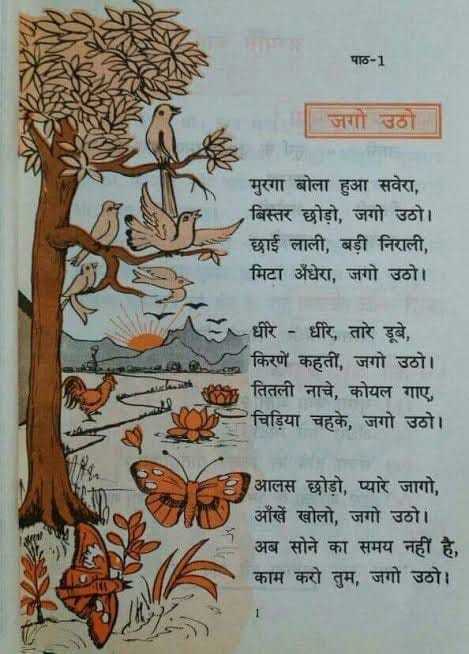 पाठ-1
जगो उठो
मुरगा बोला हुआ सवेरा,
बिस्तर छोड़ो, जगो उठो।
छाई लाली, बड़ी निराली,
मिटा अँधेरा, जगो उठो।
धीरे - धीरे, तारे डूबे,
किरणें कहतीं, जगो उठो।
तितली नाचे, कोयल गाए,
चिड़िया चहके, जगो उठो।
आलस छोड़ो, प्यारे जागो,
आँखें खोलो, जगो उठो।
अब सोने का समय नहीं है,
काम करो तुम, जगो उठो।
1